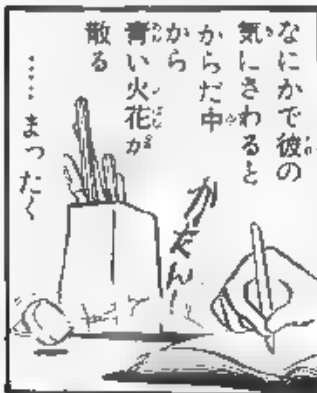 なにかで彼の
気にさわると
からだ中
から
青い火花が
散る
……まったく
がたん!